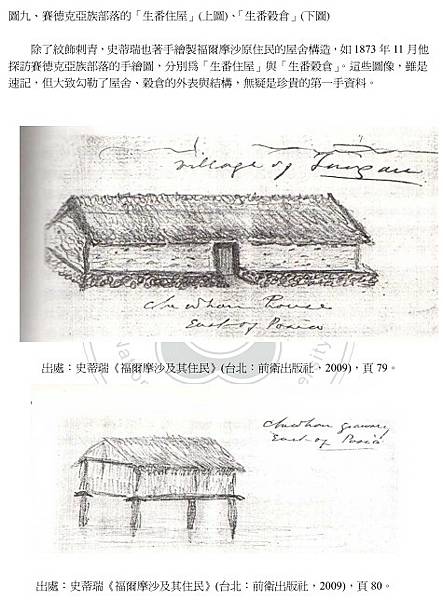 圖九、賽德克亞族部落的「生番住屋」(上圖)、「生番穀倉」(下圖)
除了紋飾刺青，史蒂瑞也著手繪製福爾摩沙原住民的屋舍構造，如 1873 年 11 月他
探訪賽德克亞族部落的手繪圖，分別為「生番住屋」與「生番穀倉」。這些圖像，雖是
速記，但大致勾勒了屋舍、穀倉的外表與結構，無疑是珍貴的第一手資料。
village of
House
East of
出處：史蒂瑞《福爾摩沙及其住民》(台北：前衛出版社，2009)，頁 79。
granary
East of
出處：史蒂瑞《福爾摩沙及其住民》(台北：前衛出版社，2009)，頁 80。